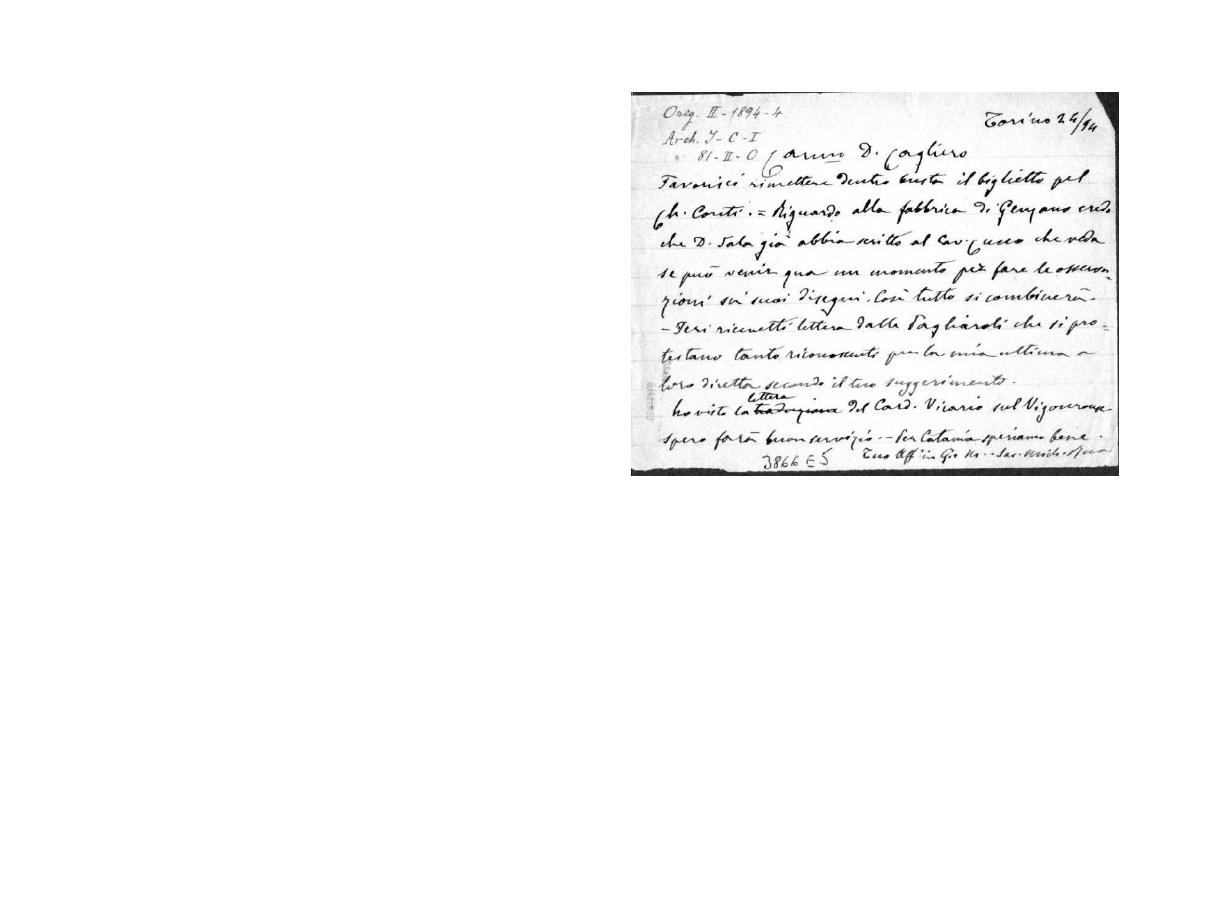 Orig. II-1894-4
Torino 24/94
Arch. I-C-I
" 81-II-O Car.mo D. Cagliero
Favorisci rimettere dentro busta il biglietto pel
Ch. Conti. = Riguardo alla fabbrica di Genzano credo
che D. Sala già abbia scritto al Cav. Cucco che veda
se può venir qua un momento per fare le osserva-
zioni sui suoi disegni. Così tutto si combinerà.
- Ieri ricevetti lettera dalle Pagliaroli che si pro-
testano tanto riconoscenti per la mia ultima a
loro diretta secondo il tuo suggerimento.
lettera
ho visto la traduzione del Card. Vicario sul Vigouroux
spero farà buon servizio. - Per Catania speriamo bene.
3866 E5 Tuo Aff. in G. e M. - Sac. Mich. Rua